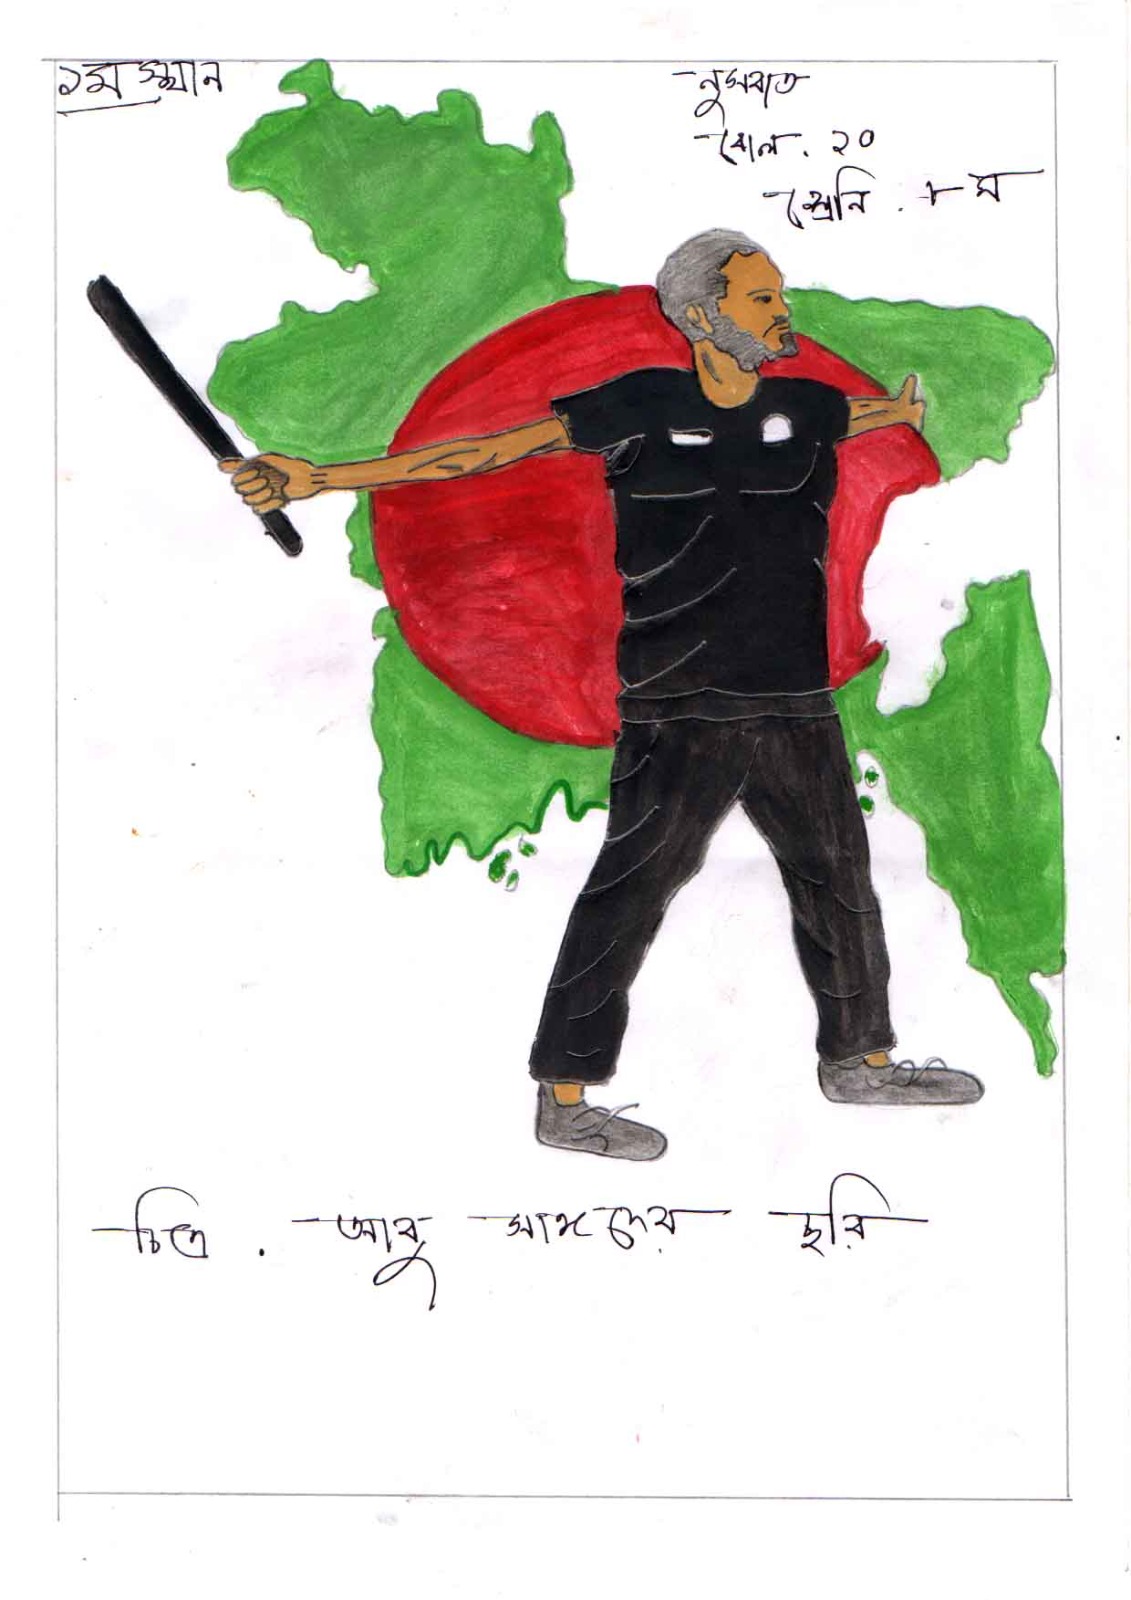 ১ম স্থান
নুসরাত
রোল. ২০
শ্রেনি. ৮ম
চিত্র. আবু সাঈদের ছবি